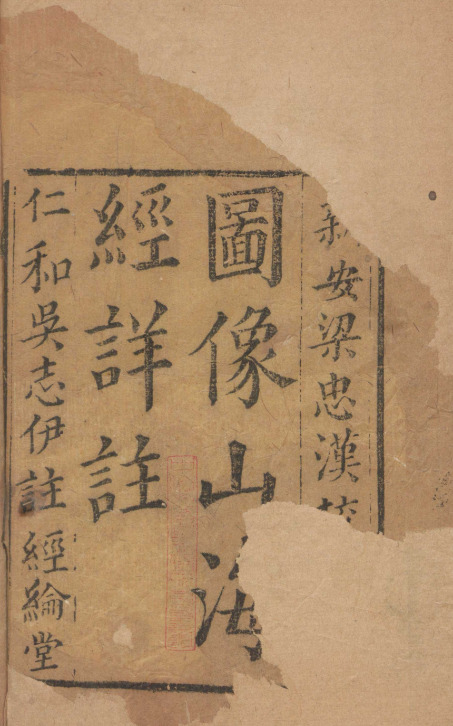 新安梁忠漢
圖像山海
經詳註
仁和吳志伊註經綸堂